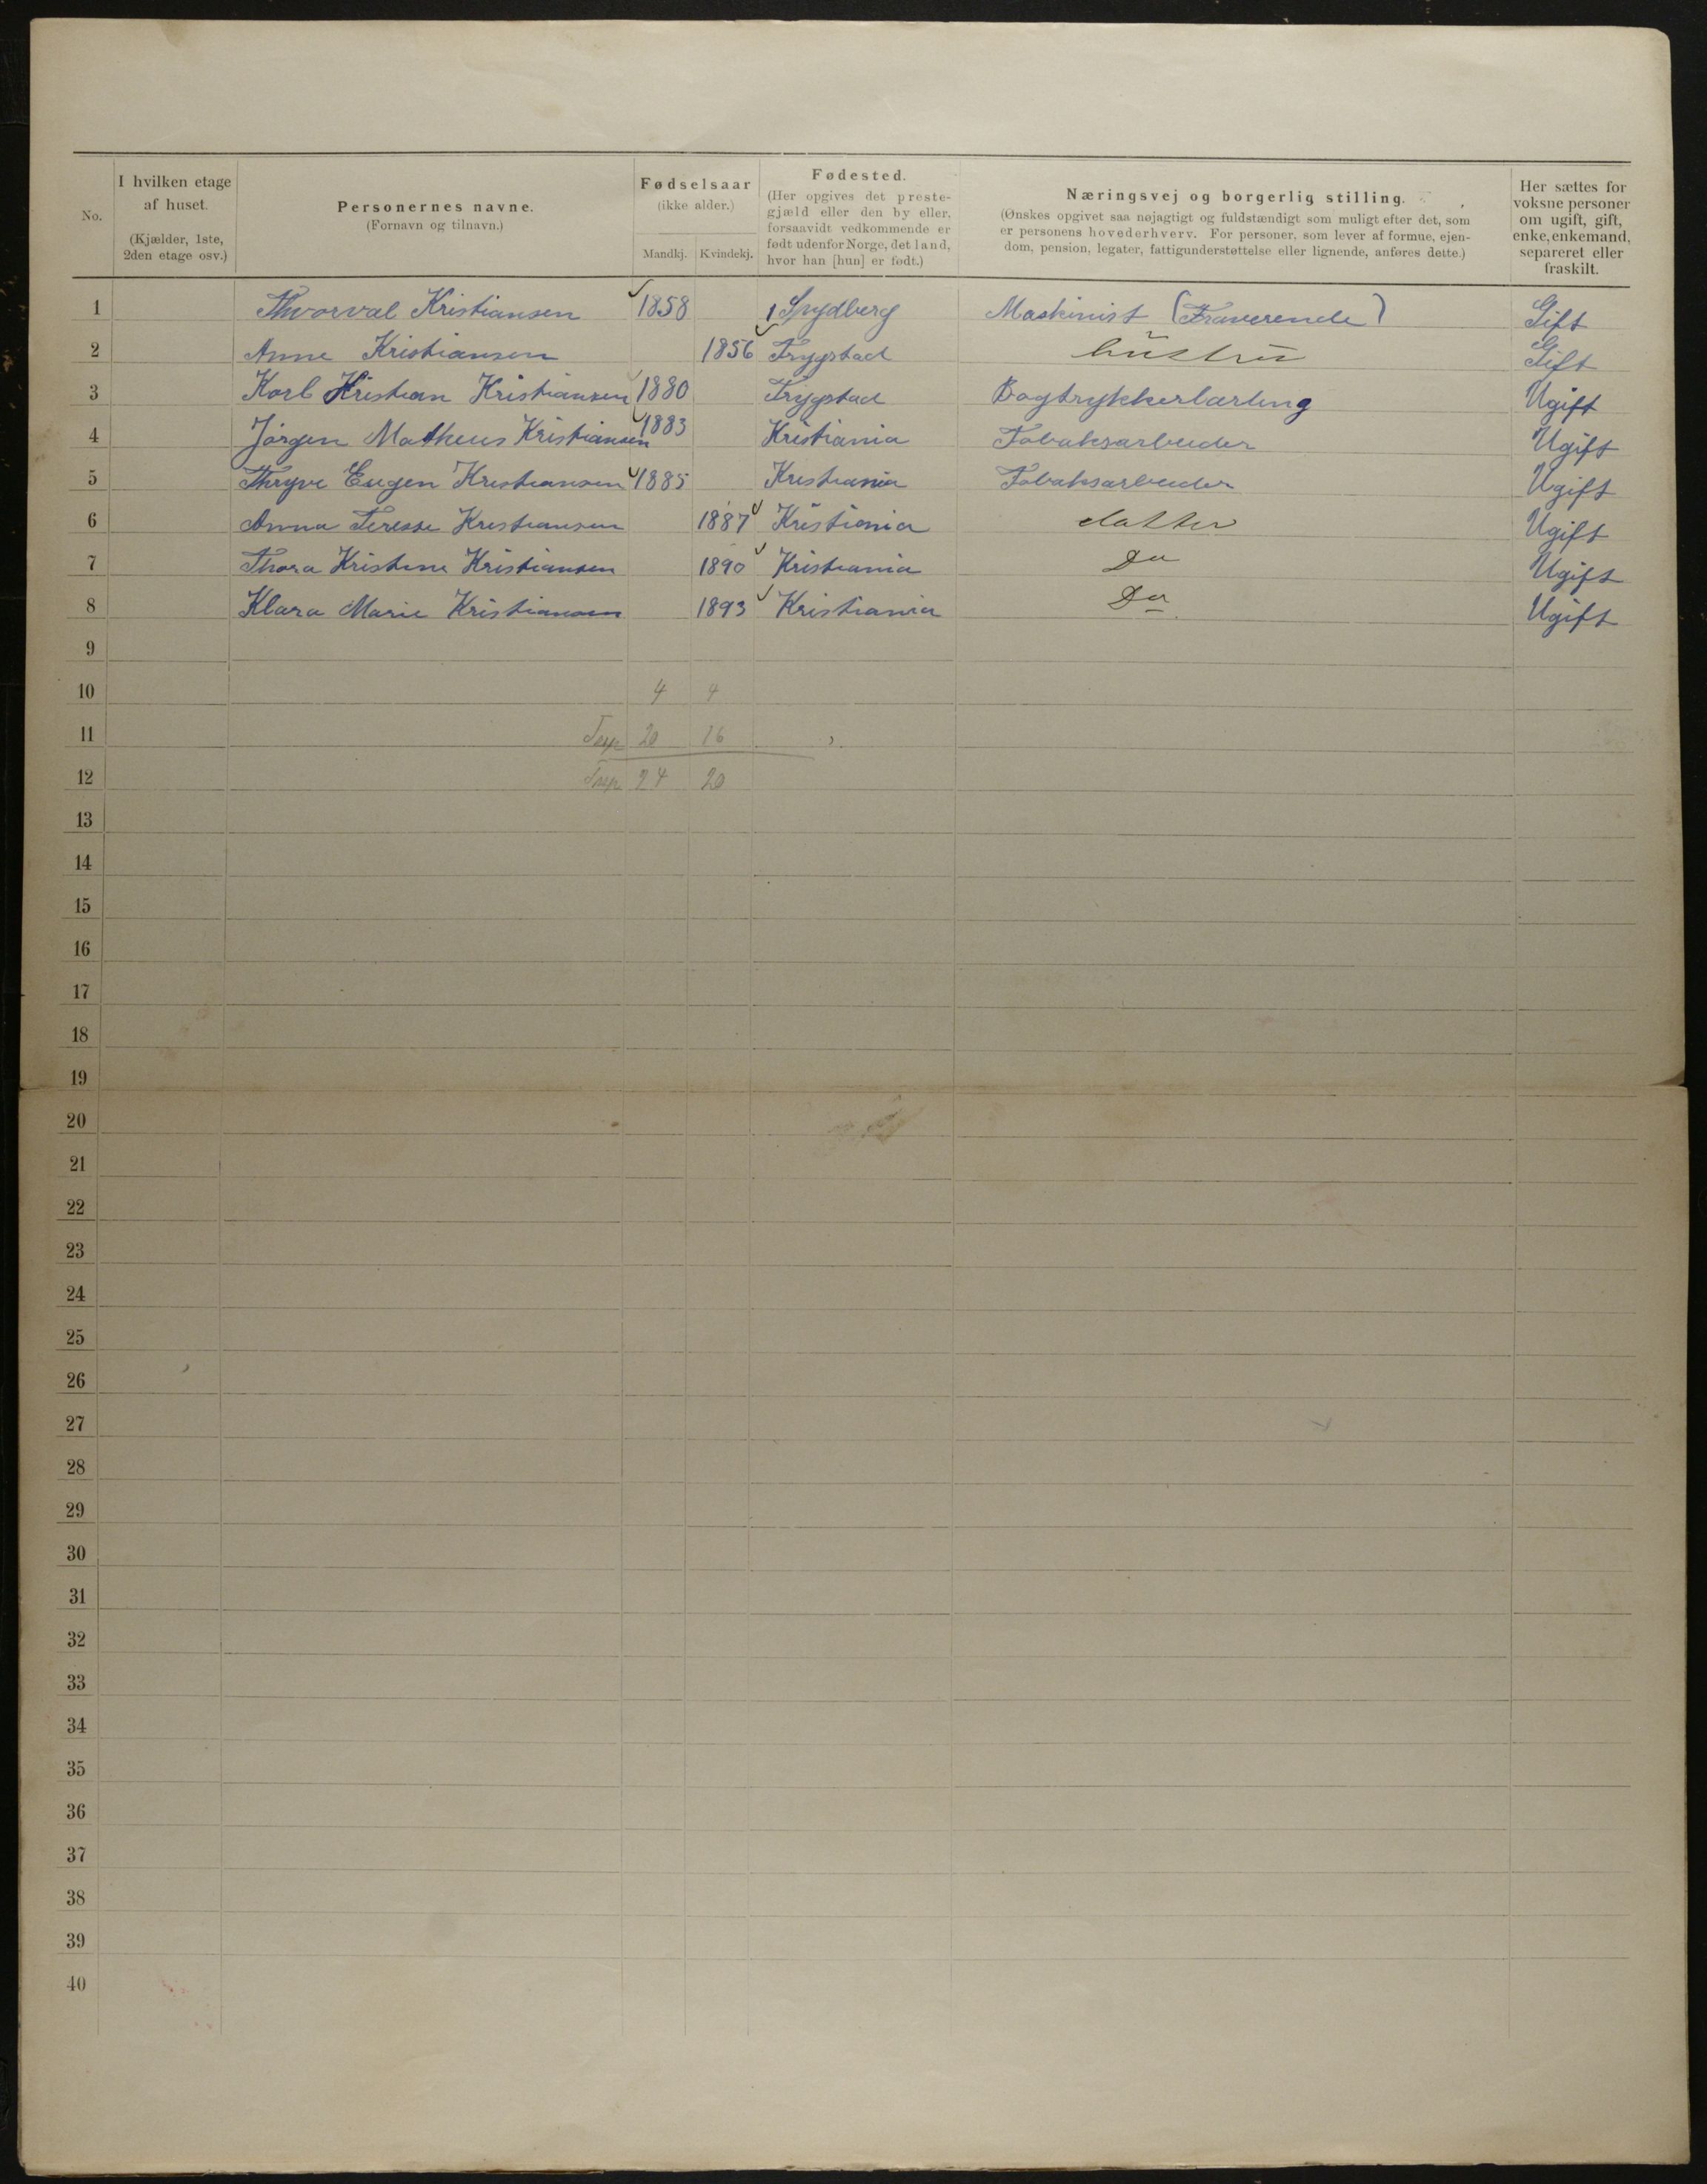 No.
I hvilken etage af huset. (Kjælder, 1ste, 2den etage osv.)
Personernes navne. (Fornavn og tilnavn.)
Fødselsaar (ikke alder.)
Mandkj. Kvindekj.
Fødested. (Her opgives det prestegjæld eller den by eller, forsaavidt vedkommende er født udenfor Norge, det land, hvor han [hun] er født.)
Næringsvej og borgerlig stilling. (Ønskes opgivet saa nøjagtigt og fuldstændigt som muligt efter det, som er personens hovederhverv. For personer, som lever af formue, ejendom, pension, legater, fattigunderstøttelse eller lignende, anføres dette.)
Her sættes for voksne personer om ugift, gift, enke, enkemand, separeret eller fraskilt.
1 Thvorval Kristiansen 1858 Spydberg Maskinist (Fraverende) Gift
2 Anne Kristiansen 1856 Trygstad hustru Gift
3 Karl Kristian Kristiansen 1880 Trygstad Bogtrykkerlærling Ugift
4 Jørgen Matheus Kristiansen 1883 Kristiania Tobaksarbeider Ugift
5 Thryve Eugen Kristiansen 1885 Kristiania Tobaksarbeider Ugift
6 Anna Teresse Kristiansen 1887 Kristiania datter Ugift
7 Thora Kristine Kristiansen 1890 Kristiania Do Ugift
8 Klara Marie Kristiansen 1893 Kristiania Do Ugift
9
10 4 4
11 20 16
12 24 20
13
14
15
16
17
18
19
20
21
22
23
24
25
26
27
28
29
30
31
32
33
34
35
36
37
38
39
40